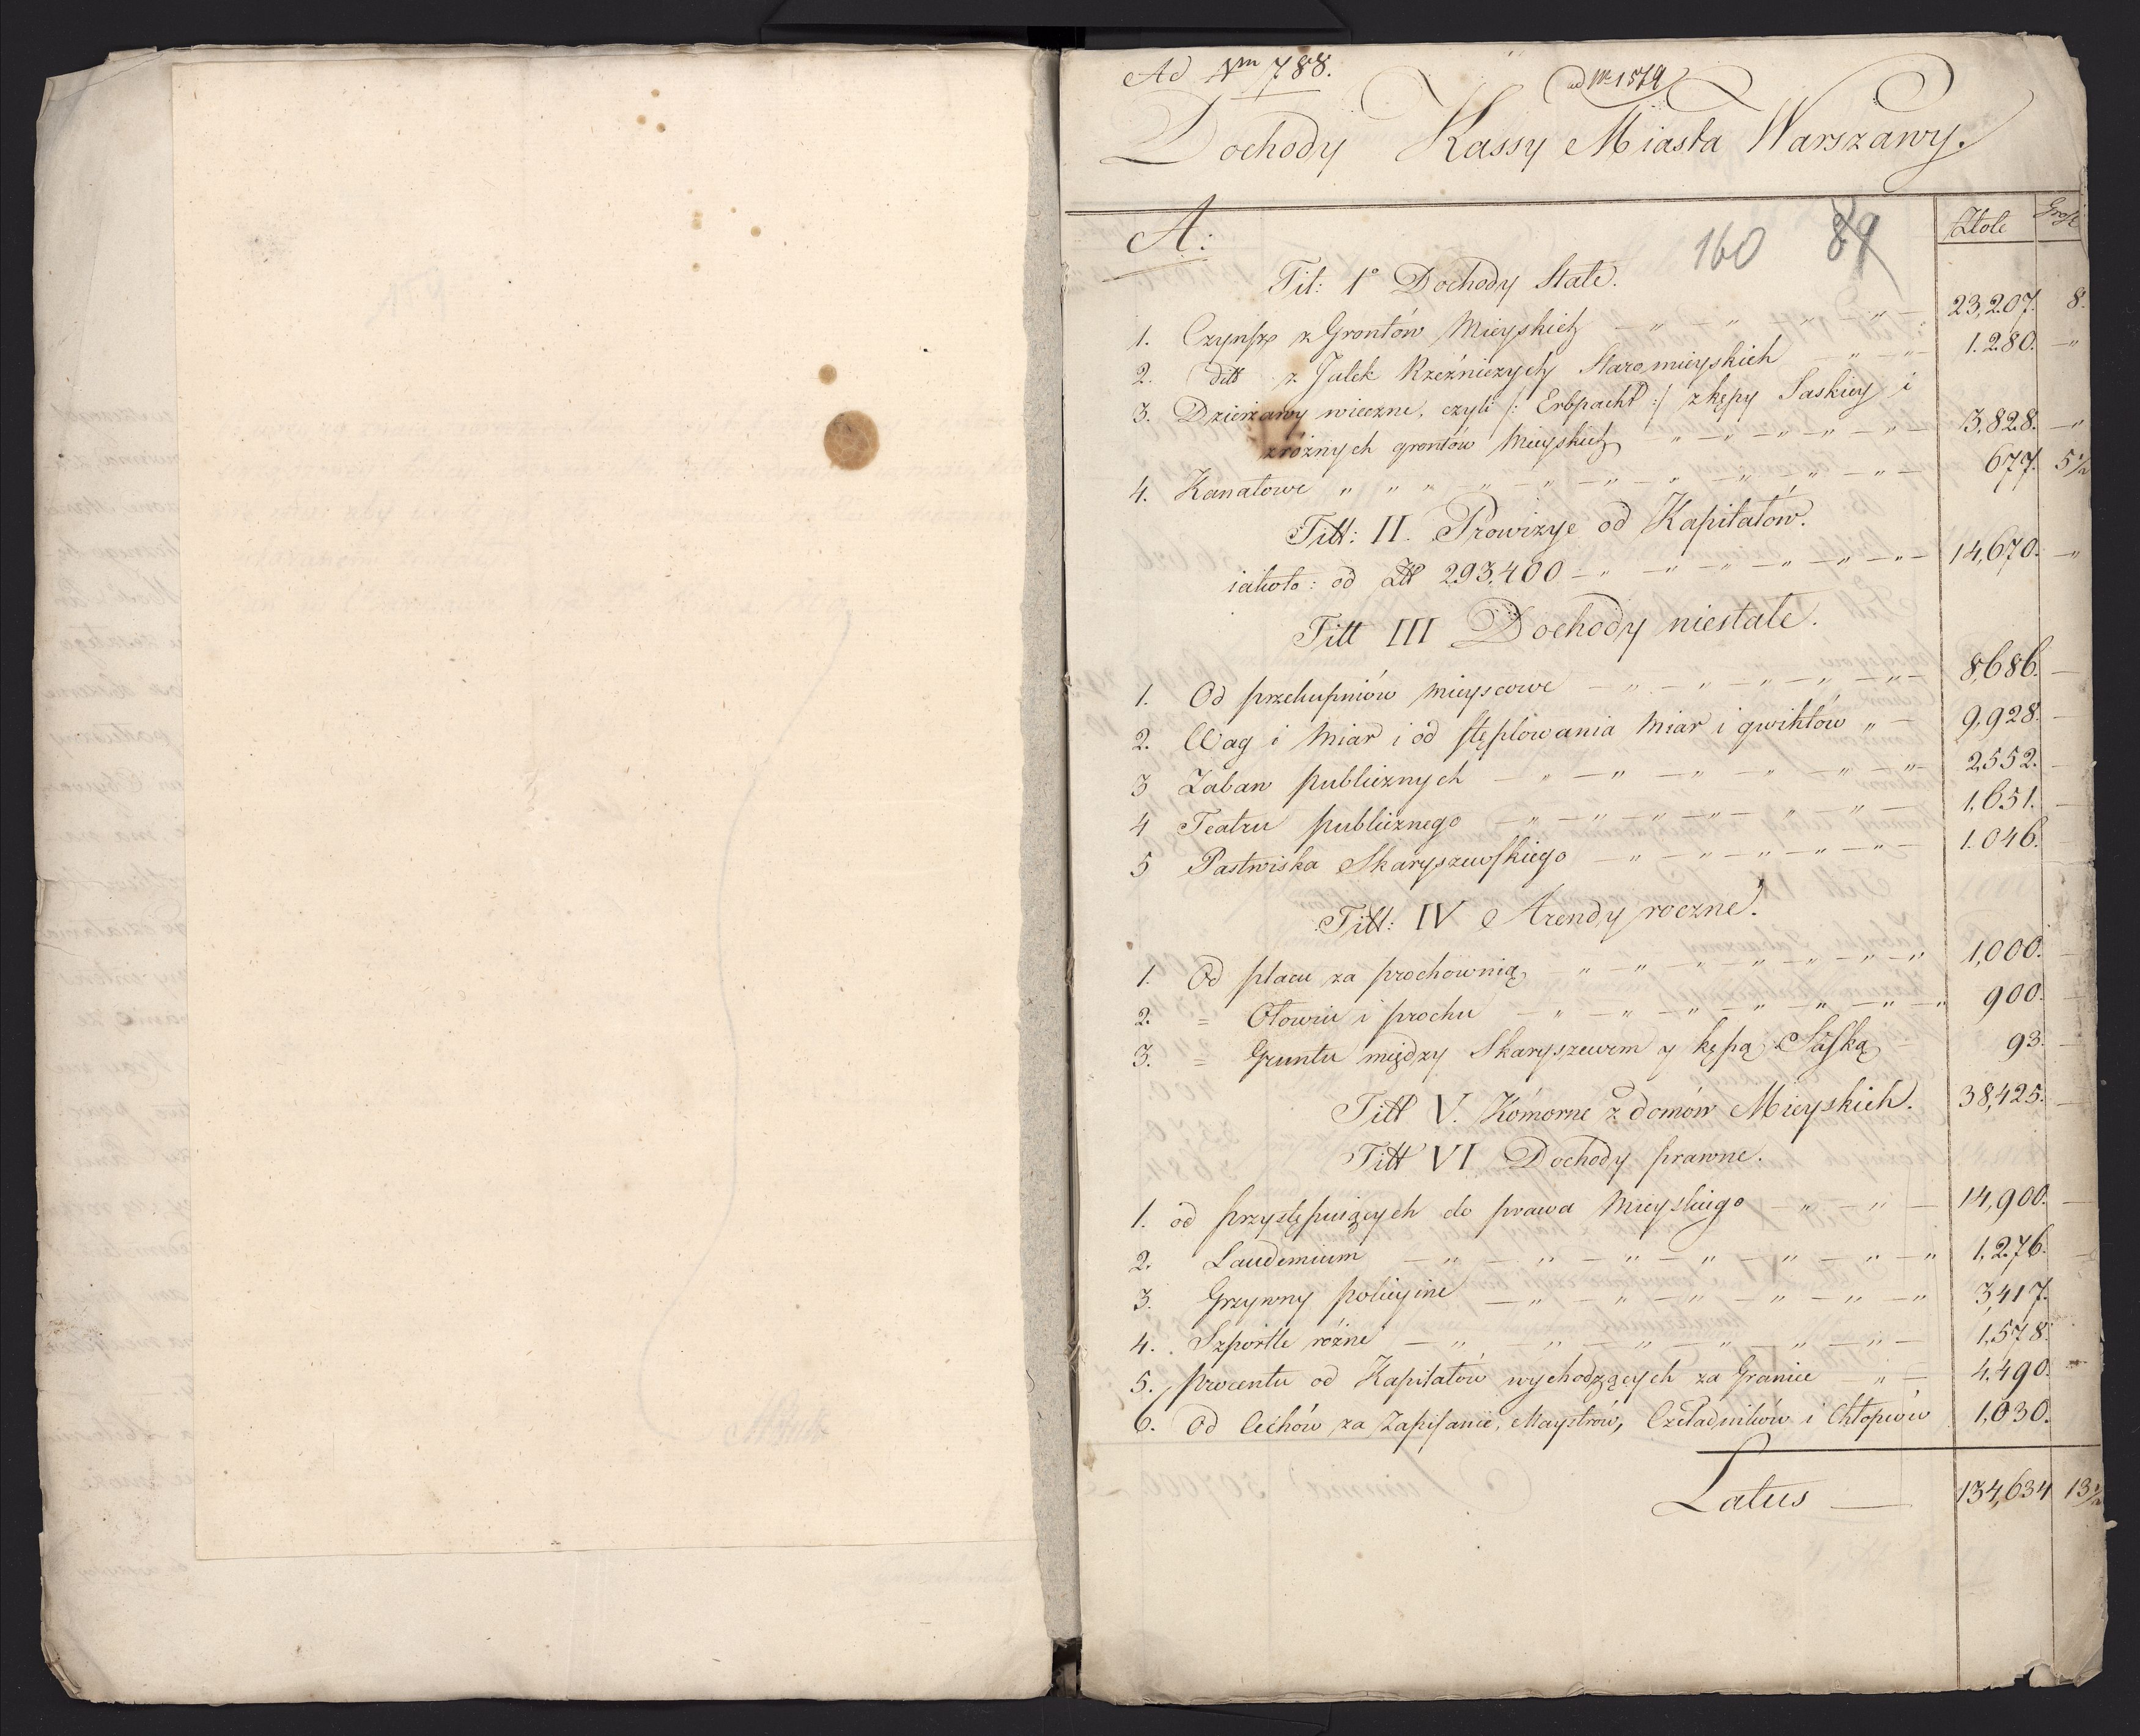 Ad Nrm 788.
ad Nr 1579
Dochody Kassy Miasta Warszawy.
A: 160 89 Złote Grosze
Tit: 1o Dochody Stałe.
1. Czynsz z Grontów Mieyskich 23,207. 8.
2. ditto z Jatek Rzeźniczych Staromieyskich 1.280. "
3. Dzierżawy wieczne, czyli /: Erbpacht :/ z kępy Saskiey i
z różnych grontów Mieyskich 3,828. "
4. Kanałowe 677. 5 1/2
Titt: II. Prowizye od Kapitałów.
iakoto: od Złt 293,400 14,670. "
Titt III Dochody niestałe.
1. Od przekupniów mieyscowe 8,686.
2. Wag i Miar i od stęplowania Miar i gwichtów 9,928.
3 Zabaw publicznych 2,552.
4 Teatru publicznego 1,651.
5 Pastwiska Skaryszewskiego 1.046.
Titt: IV Arendy roczne.
1. Od placu za prochownią 1,000.
2. = Ołowiu i prochu 900.
3. = Gruntu między Skaryszewem y kępą Saską 93.
Titt V. Komorne z domów Mieyskich. 38,425.
Titt VI Dochody prawne.
1. od przystępuiących do prawa Mieyskiego 14,900.
2. Laudemium 1,276.
3. Grzywny policyine 3,417.
4. Szportle różne 1,578.
5. procentu od Kapitałów wychodzących za Granice 4,490.
6. Od Cechów za Zapisanie, Maystrów, Czeladników i Chłopców 1,030.
Latus 134,634 13 1/2